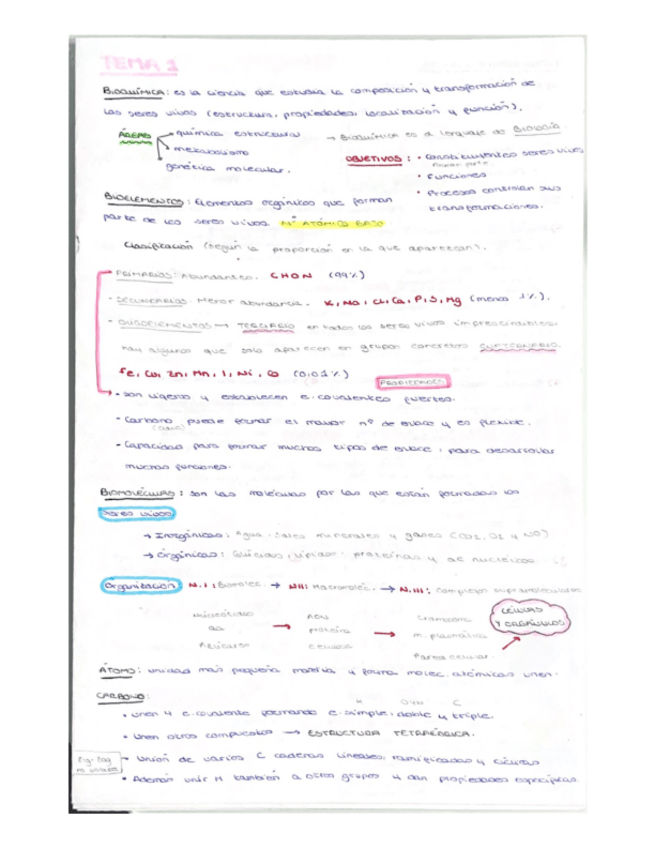 TEMA 1
BIOQUÍMICA: es la ciencia que estudia la composición y transformación de
los seres vivos (estructura, propiedades, localización y función).
ÁREAS → química estructural → BIOQUÍMICA es el lenguaje de BIOLOGÍA
→ metabolismo
genética molecular.
OBJETIVOS: • Constituyentes seres vivos
• Funciones
• Procesos controlan sus
transformaciones.
BIOELEMENTOS: Elementos orgánicos que forman
parte de los seres vivos. Nº ATÓMICO BAJO
Clasificación (según la proporción en la que aparezcan).
- PRIMARIOS: Abundantes. CHON (99%)
- SECUNDARIOS: Menor abundancia. K, Na, Cl, Ca, P, S, Mg (menos 1%).
- OLIGOELEMENTOS → TERCIARIO en todos los seres vivos imprescindibles.
Hay algunos que solo aparecen en grupos concretos CUATERNARIO.
Fe, Cu, Zn, Mn, I, Ni, Co (0,01%)
PROPIEDADES
• Son ligeros y establecen e. covalentes fuertes.
• Carbono puede formar el mayor nº de enlace y es flexible.
• Capacidad para formar muchos tipos de enlace, para desarrollar
muchas funciones.
BIOMOLÉCULAS: son las moléculas por las que están formadas los
seres vivos
→ Inorgánicas: Agua, sales minerales y gases (CO2, O2 y NO)
→ Orgánicas: Glúcidos, lípidos, proteínas y ac nucleicos
Organización: N.I: Biomolec. → N.II: Macromoléc. → N.III: Complejos supramoleculares
CÉLULAS
Y ORGÁNULOS
nucleótido ADN cromosoma
aa → proteína → m. plasmática
Azúcares celulosa Pared celular.
ÁTOMO: unidad más pequeña materia y forma molec. atómicas unen.
CARBONO:
• unen 4 e. covalente formando e. simple, doble y triple.
• Unen otros compuestos → ESTRUCTURA TETRAÉDRICA.
• Unión de varios C cadenas lineales, ramificadas y cíclicas
• Además unir H también a otros grupos y dan propiedades específicas.